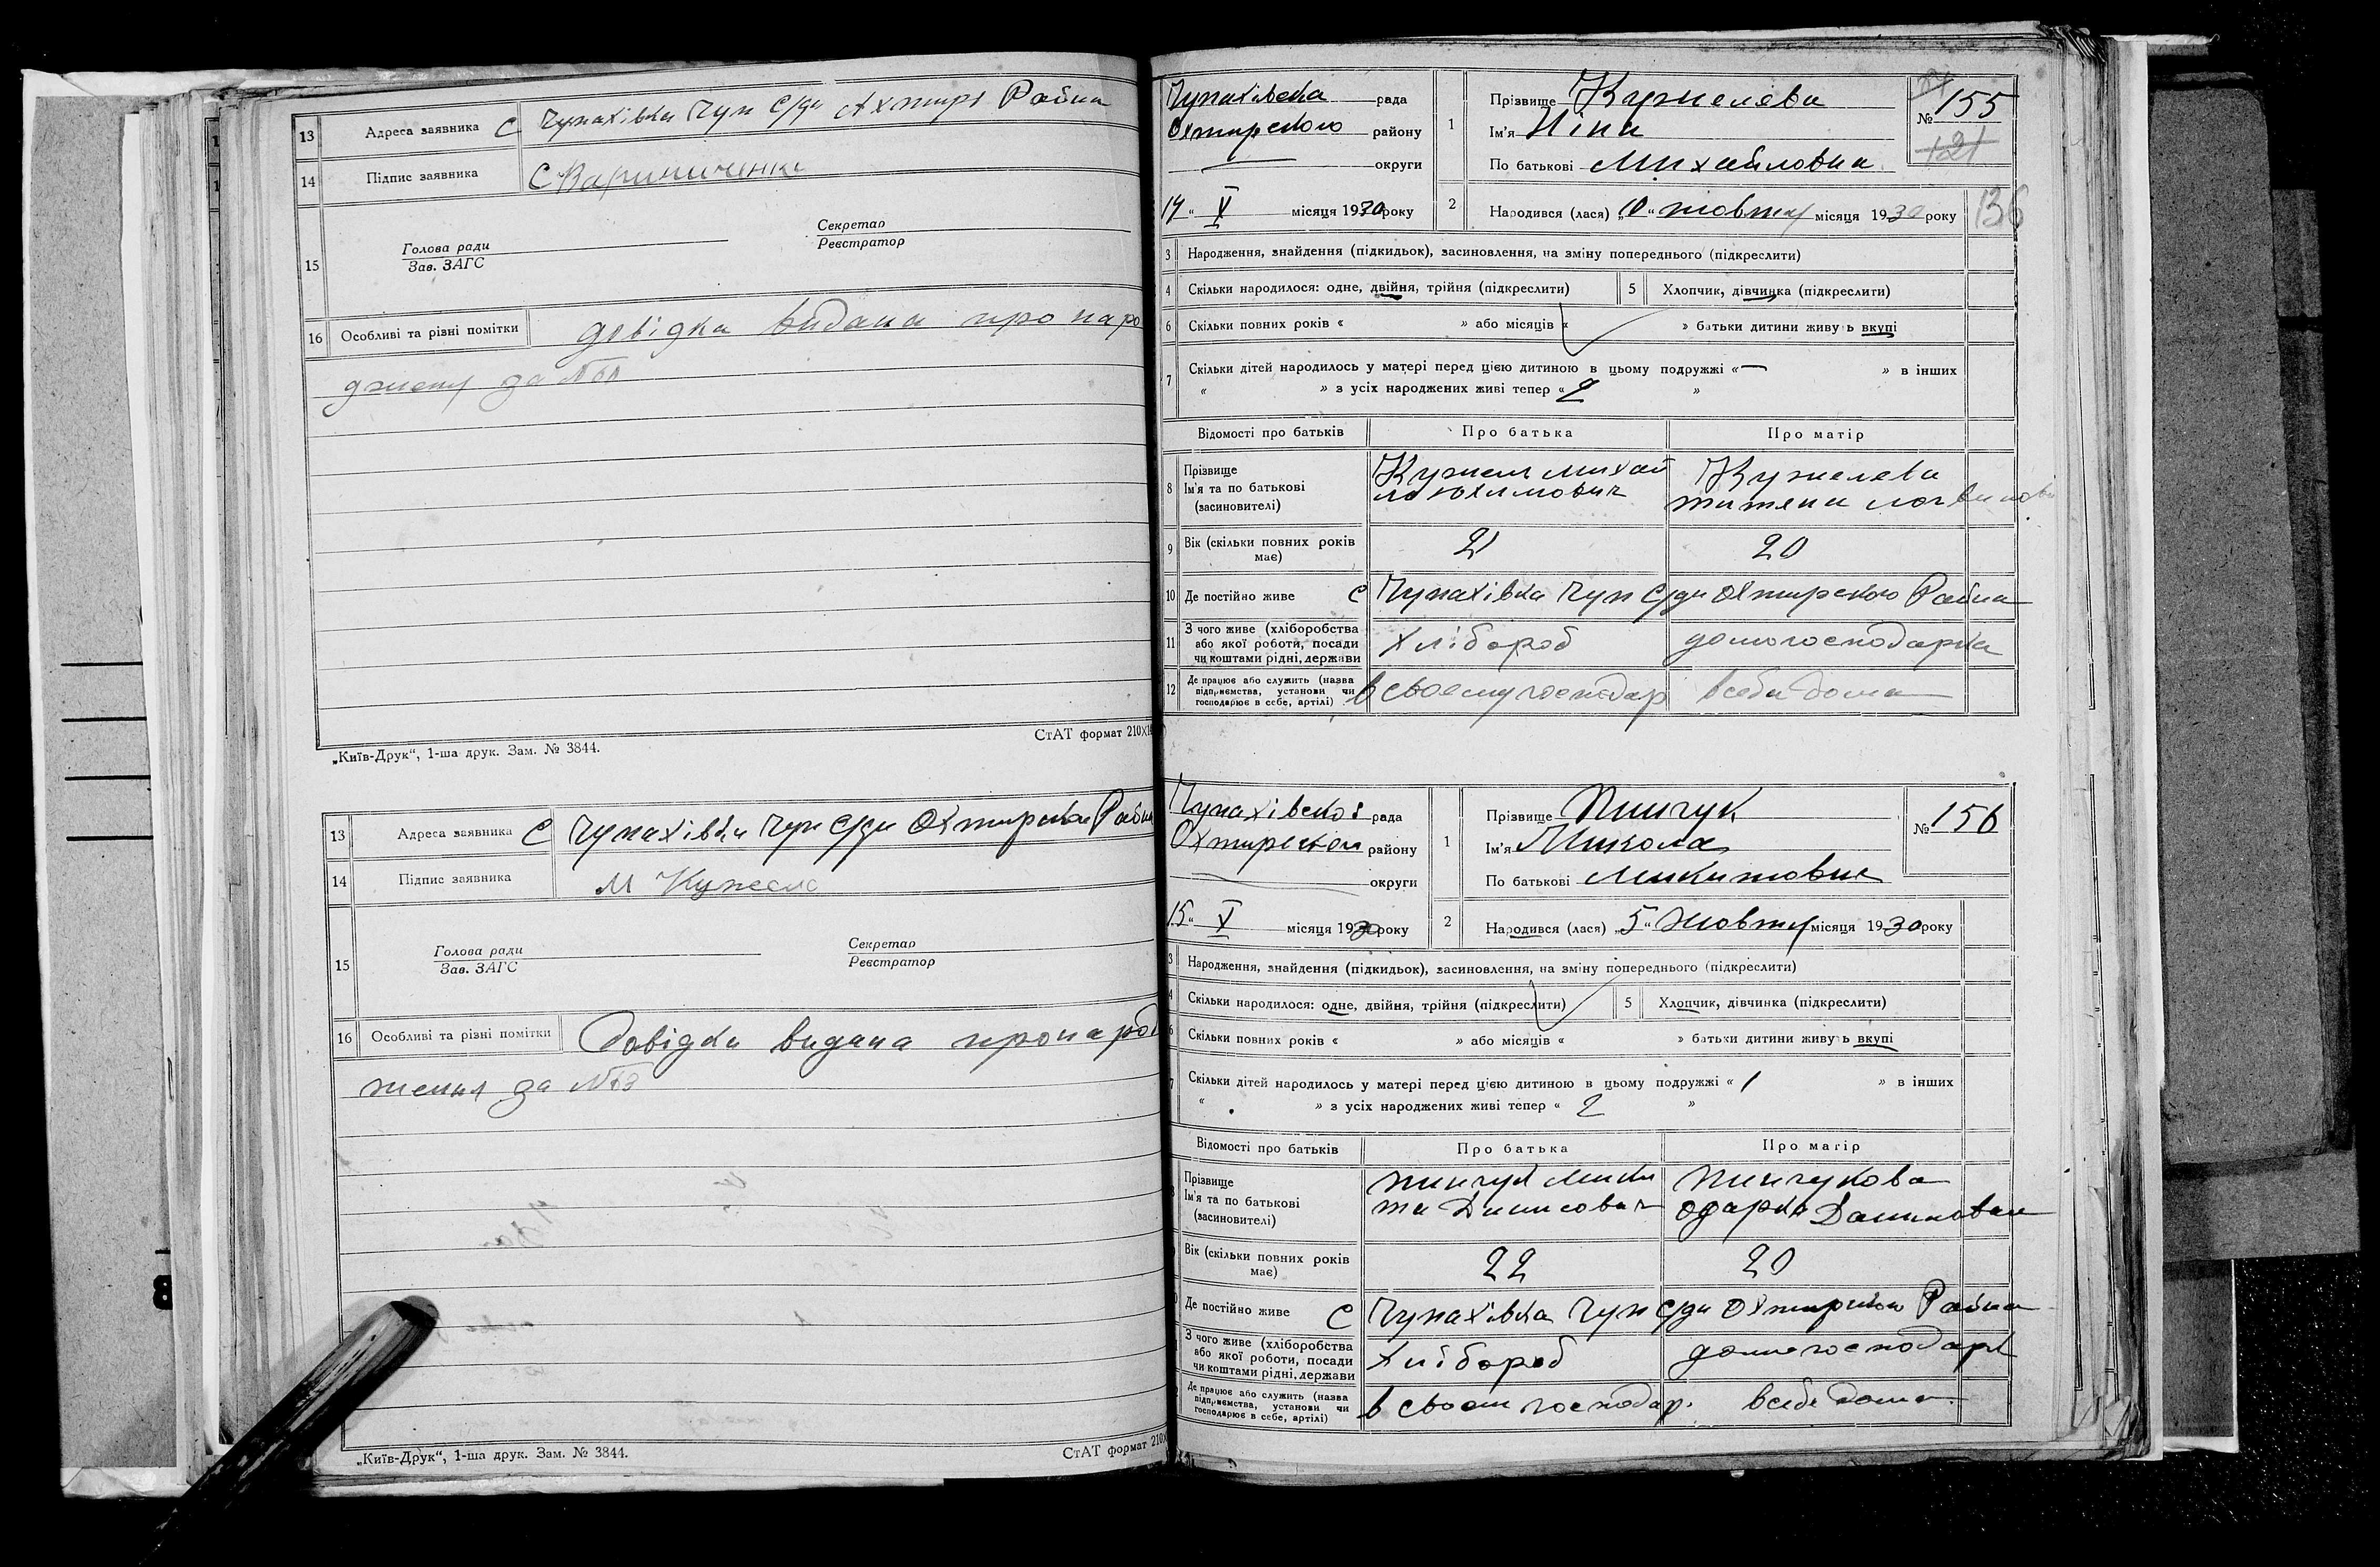 13 Адреса заявника С Чупахівка Чуп С/ди Охтирс Района
14 Підпис заявника
15 Голова ради Секретар
Зав. ЗАГС Реєстратор
16 Особливі та різні помітки довідка видана про наро
дженя за №
„Київ-Друк“, 1-ша друк. Зам. № 3844. СтАТ формат 210×
13 Адреса заявника С Чупахівка Чуп С/ди Охтирского Района
14 Підпис заявника М Кужель
15 Голова ради Секретар
Зав. ЗАГС Реєстратор
16 Особливі та різні помітки Довідка видана про народ
женя за №
„Київ-Друк“, 1-ша друк. Зам. № 3844. СтАТ формат 210×
Чупахівська рада
Охтирского району
округи
14 „ V місяця 1930 року
1 Прізвище Кужелева
Ім'я Ніна
По батькові Михайловна
№ 155
121
136
2 Народився (лася) „10“ жовтня місяця 1930 року
3 Народження, знайдення (підкидьок), засиновлення, на зміну попереднього (підкреслити)
4 Скільки народилося: одне, двійня, трійня (підкреслити) 5 Хлопчик, дівчинка (підкреслити)
6 Скільки повних років « » або місяців « » батьки дитини живуть вкупі
7 Скільки дітей народилось у матері перед цією дитиною в цьому подружжі «—» в інших
« » з усіх народжених живі тепер « 2 »
Відомості про батьків Про батька Про матір
8 Прізвище Ім'я та по батькові (засиновителі)
Кужель Михай
ло Юхимович
Кужелева
Титяна Логвинови
9 Вік (скільки повних років має) 21 20
10 Де постійно живе С Чупахівка Чуп С/ди Охтирского Района
11 З чого живе (хліборобства або якої роботи, посади чи коштами рідні, держави хлібороб домогосподарка
12 Де працює або служить (назва підприємства, установи чи господарює в себе, артілі) в своему господар в себи дома
Чупахівскої рада
Охтирского району
округи
15 „ V місяця 1930 року
1 Прізвище Пинчук
Ім'я Микола
По батькові Микитович
№ 156
2 Народився (лася) „5“ Жовтня місяця 1930 року
3 Народження, знайдення (підкидьок), засиновлення, на зміну попереднього (підкреслити)
4 Скільки народилося: одне, двійня, трійня (підкреслити) 5 Хлопчик, дівчинка (підкреслити)
6 Скільки повних років « » або місяців « » батьки дитини живуть вкупі
7 Скільки дітей народилось у матері перед цією дитиною в цьому подружжі « 1 » в інших
« » з усіх народжених живі тепер « 2 »
Відомості про батьків Про батька Про матір
Прізвище Ім'я та по батькові (засиновителі)
Пинчук Мики
та Динисович
Пинчукова
Одарка Данилован
Вік (скільки повних років має) 22 20
Де постійно живе С Чупахівка Чуп С/ди Охтирского Района
З чого живе (хліборобства або якої роботи, посади чи коштами рідні, держави хлібороб домогосподарк
Де працює або служить (назва підприємства, установи чи господарює в себе, артілі) в своем господар. в себе дома